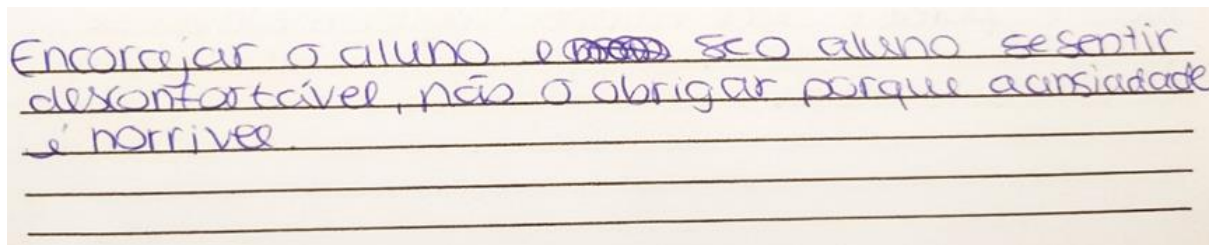 Encorajar o aluno e se o aluno se sentir
desconfortável, não o obrigar porque a ansiadade
é horrivel.